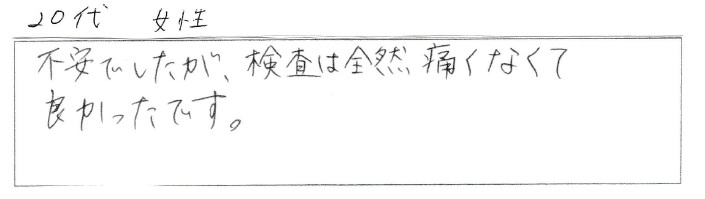 20代 女性
不安でしたが、検査は全然痛くなくて
良かったです。